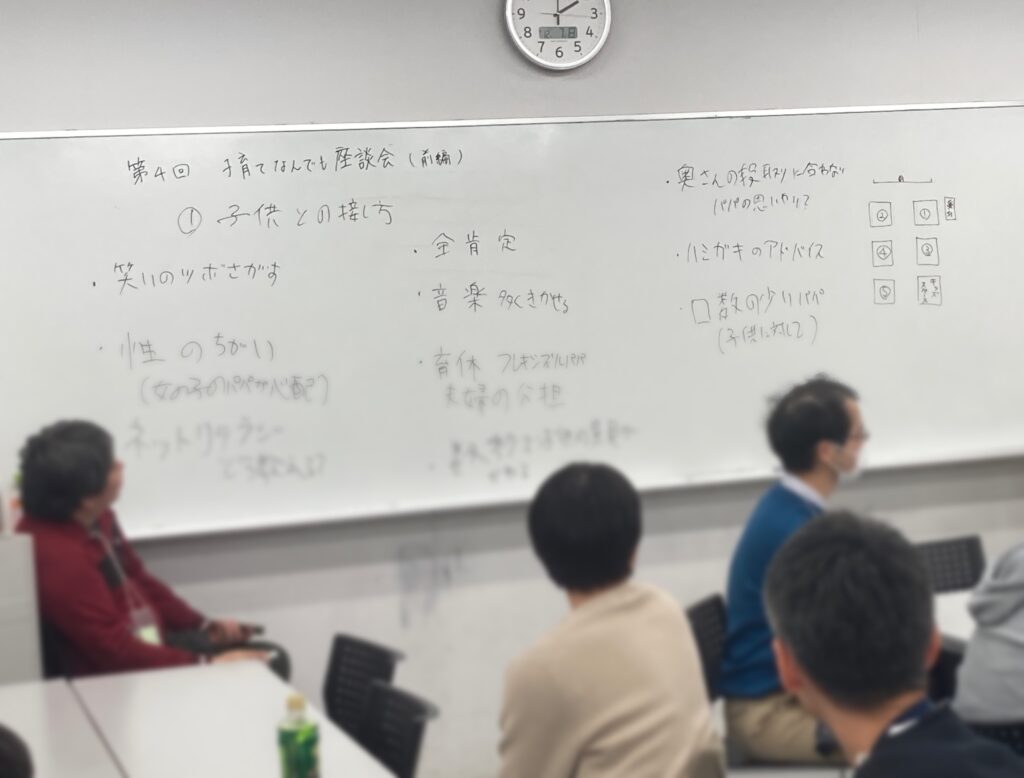 第4回 子育てなんでも座談会(前編)
① 子供との接し方
・笑いのツボさがす
・性のちがい
(女の子のパパが心配)
ネットリテラシー
どう教える?
・全肯定
・音楽 多くきかせる
・育休 フレキシブルパパ
夫婦の分担
・奥さんの段取りに合わない
パパの思いやり?
・ハミガキのアドバイス
口数の少いパパ
(子供に対して)
前
② ①
④ ③
⑤ キッズスペース
9 3
8 4
7 6 5